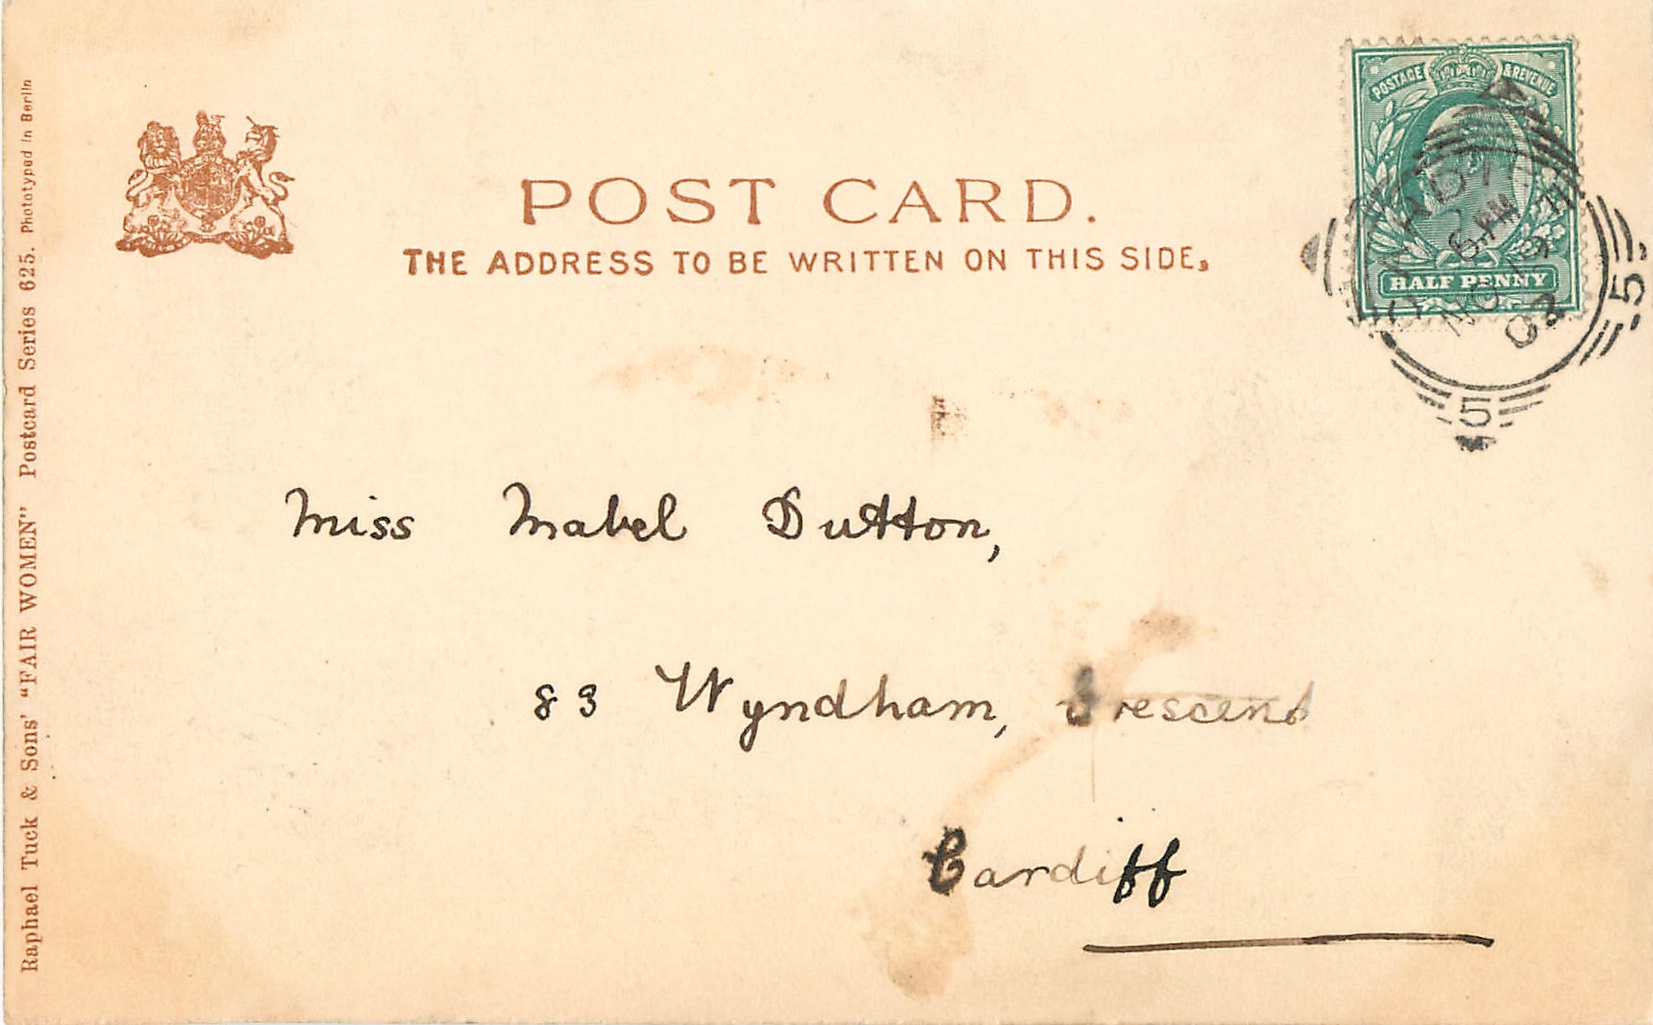 POST CARD.
THE ADDRESS TO BE WRITTEN ON THIS SIDE.
POSTAGE & REVENUE
HALF PENNY
CARDIFF
6. PM
NO 19
02
5
5
Miss Mabel Dutton,
83 Wyndham, Crescend
Cardiff
Raphael Tuck & Sons' "FAIR WOMEN" Postcard Series 625. Phototyped in Berlin